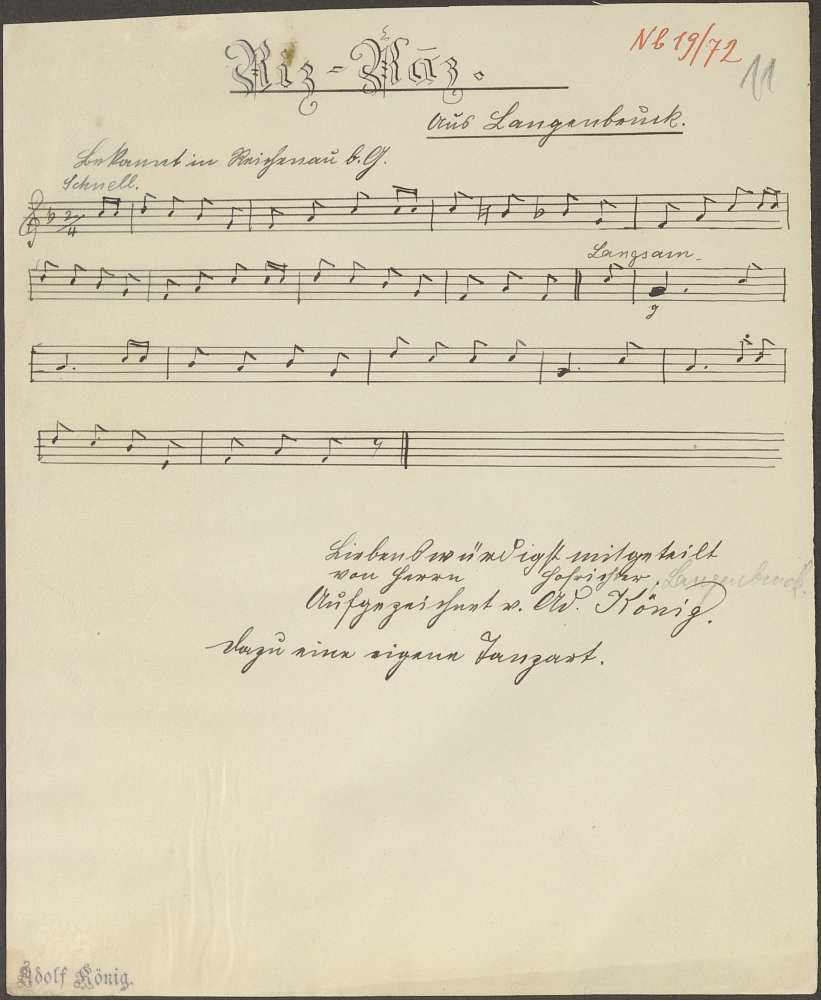 Riz-Räz.
Nb 19/72
11
Aus Langenbruck.
Bekannt in Reichenau b. G.
Schnell.
2/4
Langsam.
g
Liebenswürdigst mitgeteilt
von Herrn Hohrichter. Langenbruck.
Aufgezeichnet v. Ad. König.
Dazu eine eigene Tanzart.
Adolf König.